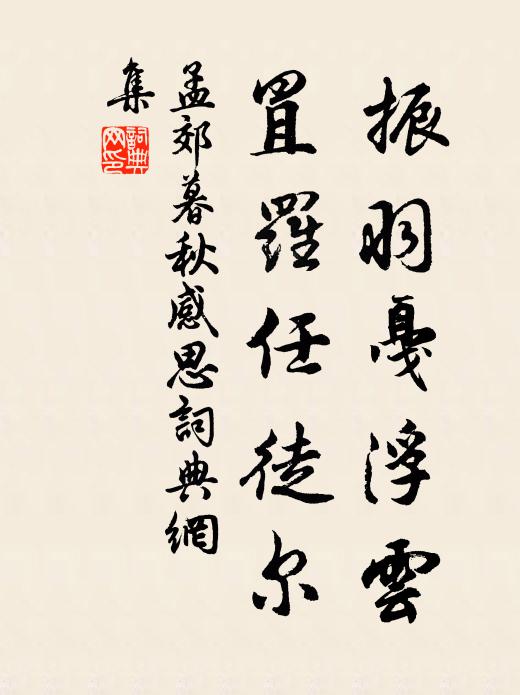 振羽戛浮雲
罝羅任徒尔
孟郊暮秋感思詞典網
集
詞典
网印